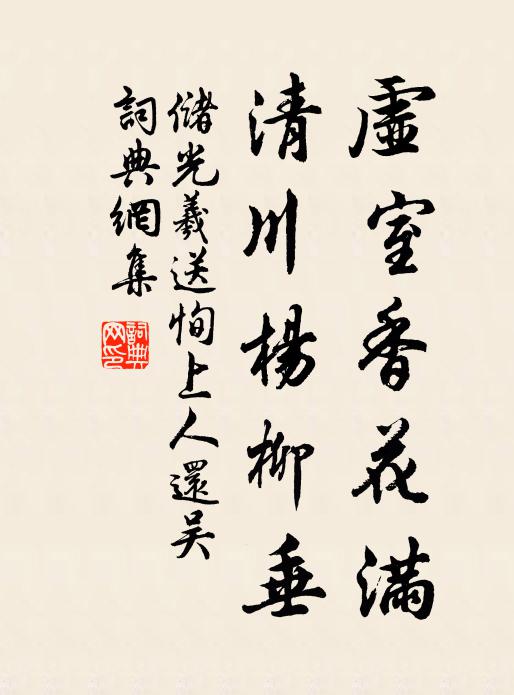 虛室香花滿
清川楊柳垂
儲光羲送恂上人還吳
詞典網集
詞典网印